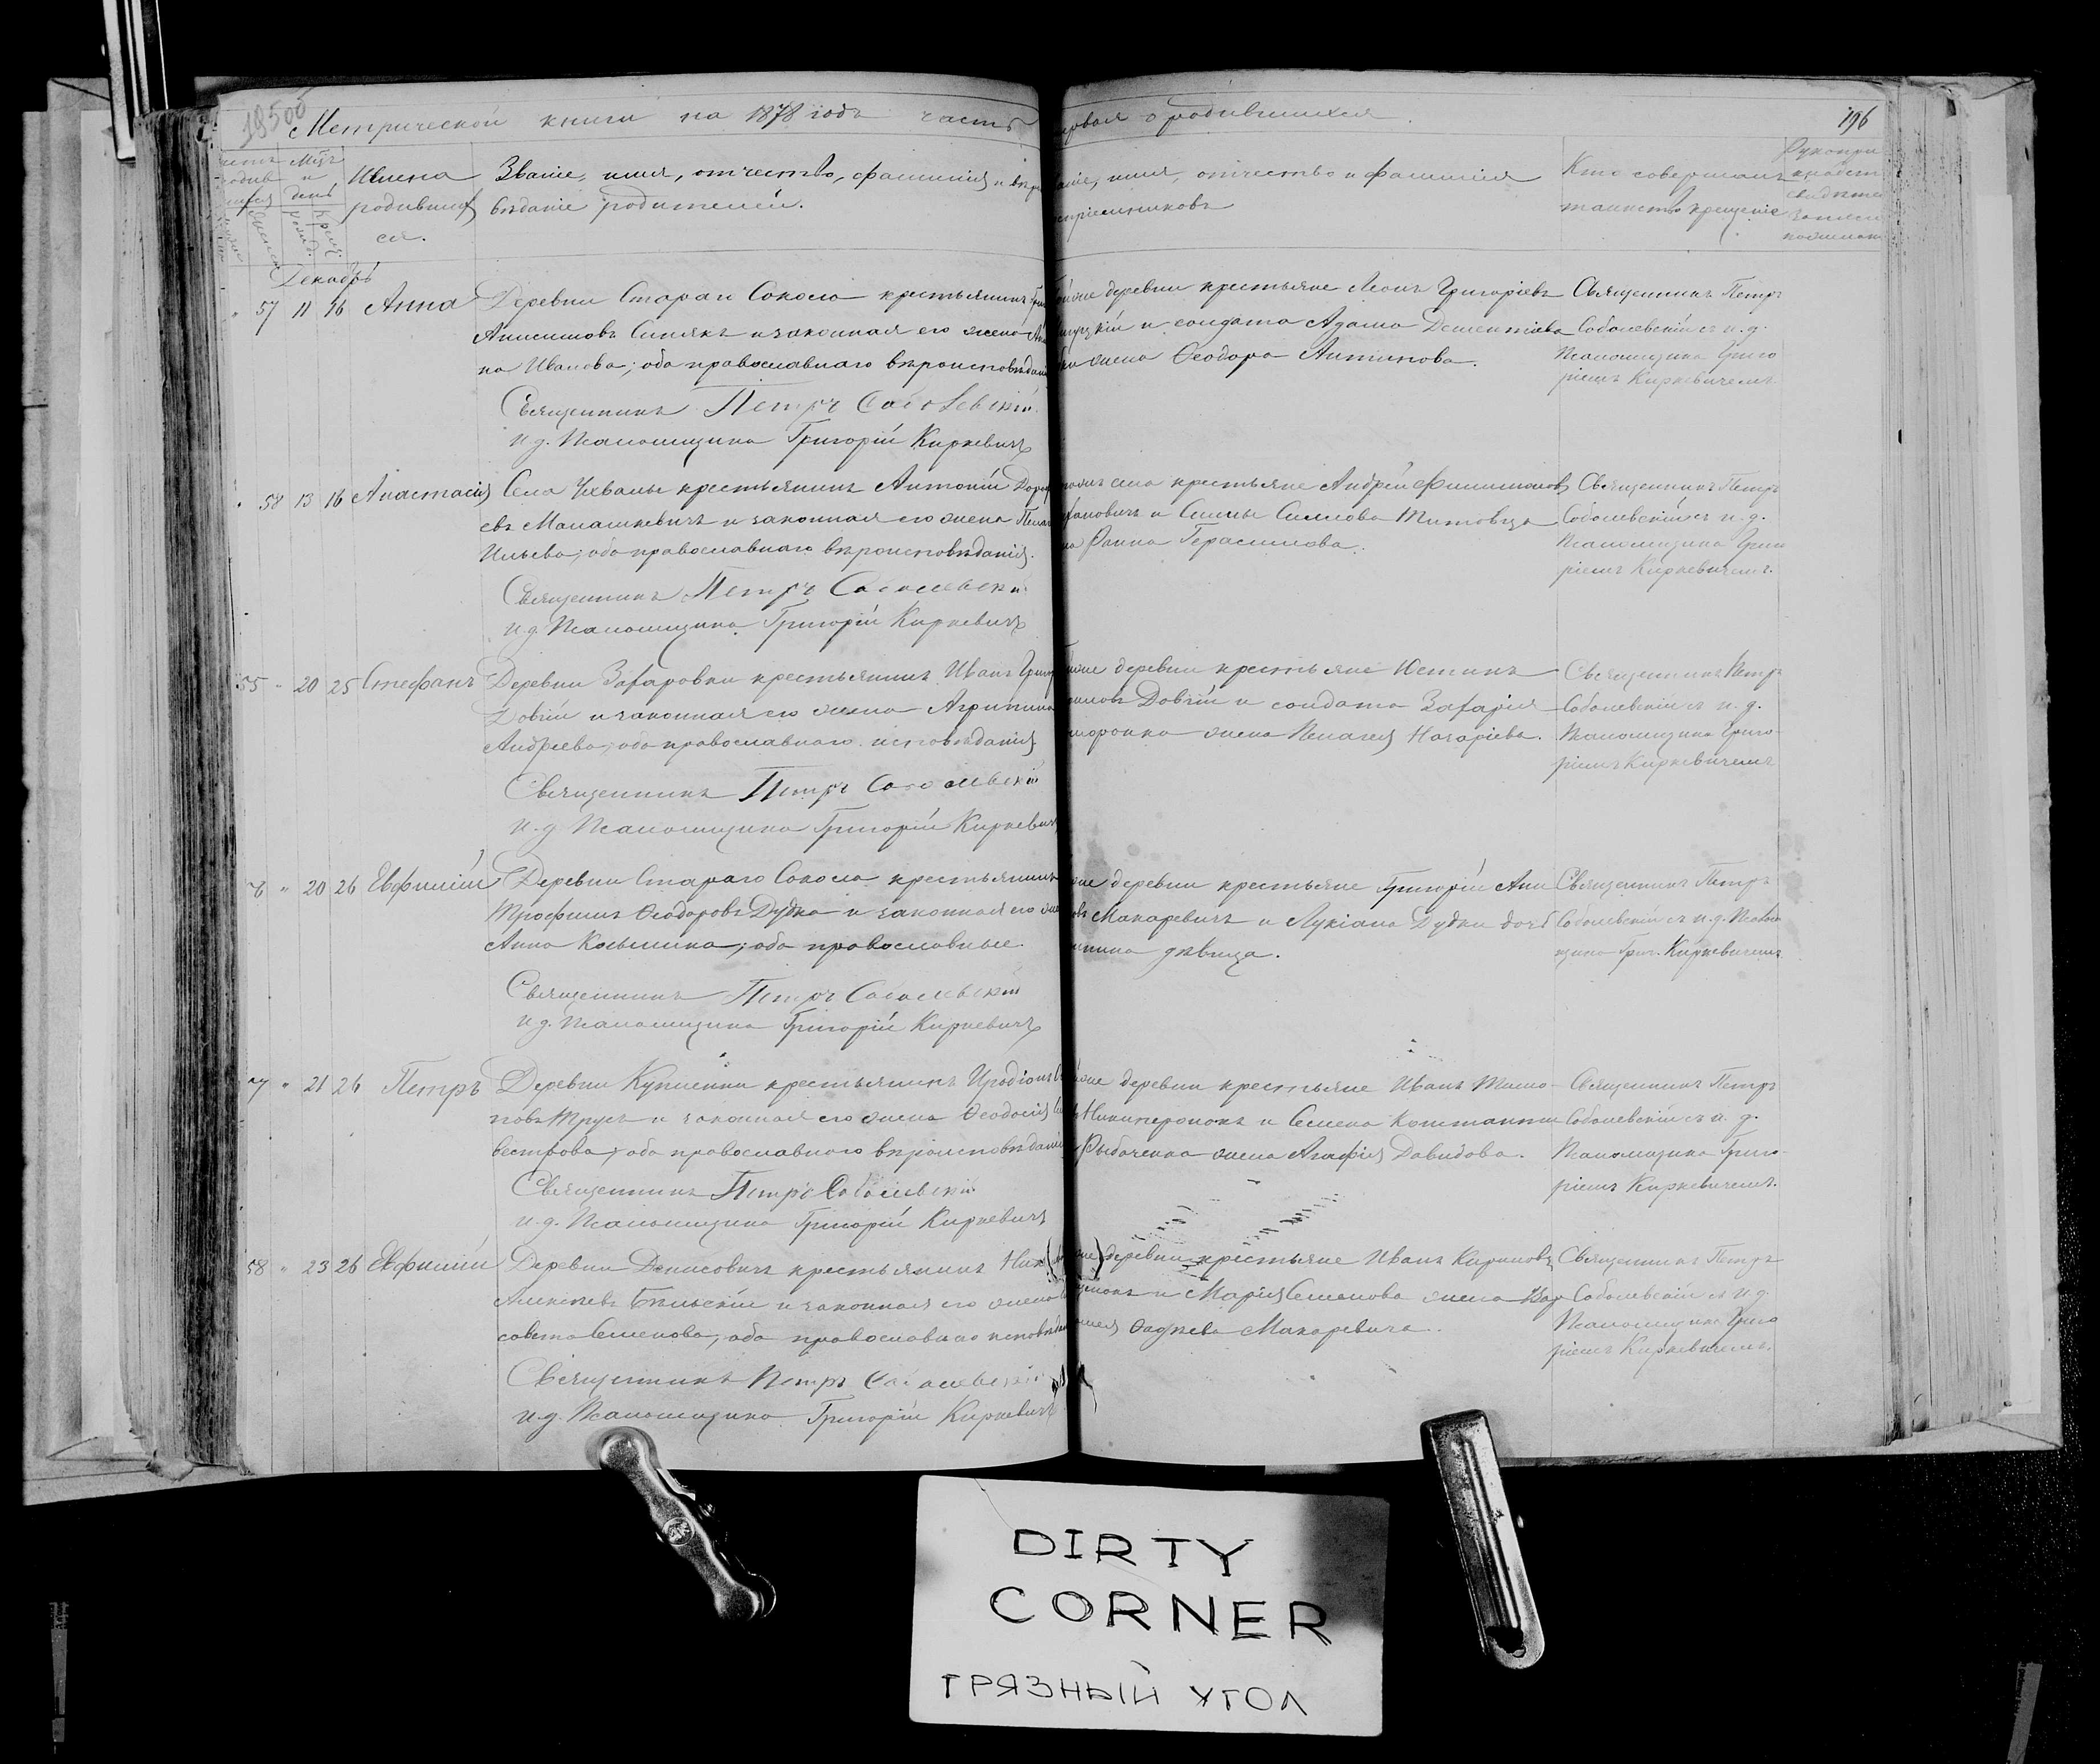 18500
Метрической книги на 1878 годъ часть первая о родившихся.
196
Имена родившихся.
Званіе, имя, отчество, фамилія и вѣро
вѣданіе родителей.
аніе, имя, отчество и фамилія
пріемниковъ
Кто совершалъ
таинство крещенія
Рукопри
кладст
свидѣте
записи
Декабрь
57 11 16 Анна
Деревни Стараго Сокола крестьянинъ
Анисимовъ Синякъ и законная его жена
на Иванова; оба православнаго вѣроисповѣдан
Священникъ Петръ Соболевскій
и. д. Псаломщика Григорій Киркевичъ
деревни крестьяне Леонъ Григоріевъ
и солдата Адама Дементіева
жена Ѳеодора Антипова.
Священникъ Петръ
Соболевскій съ и. д.
Псаломщика Григо
ріемъ Киркевичемъ.
58 13 16 Анастасія
Села Ухвалы крестьянинъ Антоній
евъ Малашкевичъ и законная его жена Пела
Ильева; оба православнаго вѣроисповѣданія.
Священникъ Петръ Соболевскій
и. д. Псаломщика Григорій Киркевичъ
села крестьяне Андрей Филимоновъ
и Симы Титовца
Герасимова.
Священникъ Петръ
Соболевскій съ и. д.
Псаломщика Григо
ріемъ Киркевичемъ.
55 " 20 25 Стефанъ
Деревни Захаровки крестьянинъ Иванъ Григор
Довгій и законная его жена Агрипина
Андреева; оба православнаго исповѣданія
Священникъ Петръ Соболевскій
и. д. Псаломщика Григорій Киркевичъ
деревни крестьяне Юстинъ
Довгій и солдата Захарія
жена Пелагея Назаріева.
Священникъ Петръ
Соболевскій съ и. д.
Псаломщика Григо-
ріемъ Киркевичемъ
6 " 20 26 Евфимій
Деревни Стараго Сокола крестьянинъ
Трофимъ Ѳеодоровъ Дудка и законная его же
Анна Косьмина; оба православные.
Священникъ Петръ Соболевскій
и. д. Псаломщика Григорій Киркевичъ
деревни крестьяне Григорій Ани
овъ Макаревичъ и Лукіана Дудки дочь
дѣвица.
Священникъ Петръ
Соболевскій съ и. д. Псалом
щика Григ. Киркевичемъ
7 " 21 26 Петръ
Деревни Купленки крестьянинъ Иродіонъ
повъ Трусъ и законная его жена Ѳеодосія
вестрова; оба православнаго вѣроисповѣдані
Священникъ Петръ Соболевскій
и. д. Псаломщика Григорій Киркевичъ
деревни крестьяне Иванъ Тимо-
и Семена Константи
Рыбаченка жена Агафія Давидова.
Священникъ Петръ
Соболевскій съ и. д.
Псаломщика Григо-
ріемъ Киркевичемъ.
58 " 23 26 Евфимій
Деревни Денисовичъ крестьянинъ Ник
Алексѣевъ Бѣльскій и законная его жена
савета Семенова; оба православнаго исповѣдан
Священникъ Петръ Соболевскій
и. д. Псаломщика Григорій Киркевичъ
деревни крестьяне Иванъ Кириловъ
и Марія Семенова жена
Ѳадѣева Макаревича.
Священникъ Петръ
Соболевскій съ и. д.
Псаломщика Григо
ріемъ Киркевичемъ.
DIRTY
CORNER
ГРЯЗНЫЙ УГОЛ